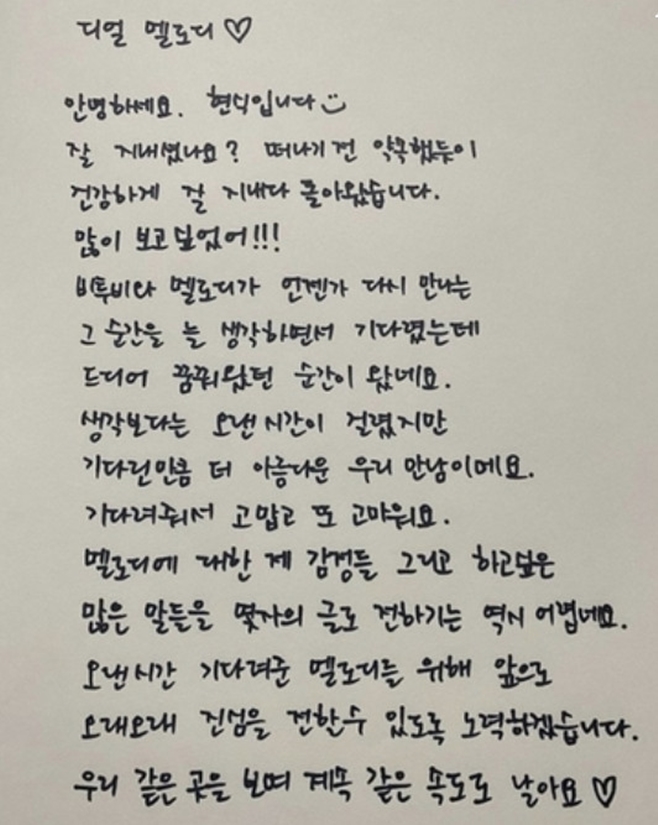 디얼 멜로디♡
안녕하세요. 현식입니다☺
잘 지내셨나요? 떠나기 전 약속했듯이
건강하게 잘 지내다 돌아왔습니다.
많이 보고싶었어!!!
비투비와 멜로디가 언젠가 다시 만나는
그 순간을 늘 생각하면서 기다렸는데
드디어 꿈꿔왔던 순간이 왔네요.
생각보다는 오랜시간이 걸렸지만
기다린만큼 더 아름다운 우리 만남이에요.
기다려줘서 고맙고 또 고마워요.
멜로디에 대한 제 감정들 그리고 하고싶은
많은 말들을 몇자의 글로 전하기는 역시 어렵네요.
오랜시간 기다려준 멜로디들 위해 앞으로
오래오래 진심을 전할수 있도록 노력하겠습니다.
우리 같은 곳을 보며 계속 같은 속도로 날아요♡